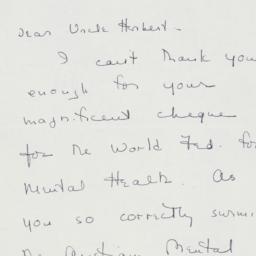 Dear Uncle Herbert -
I can't thank you
enough for your
magnificent cheque
for the World Fed. for
Mental Health. As
you so correctly surmi
the Austrian Mental